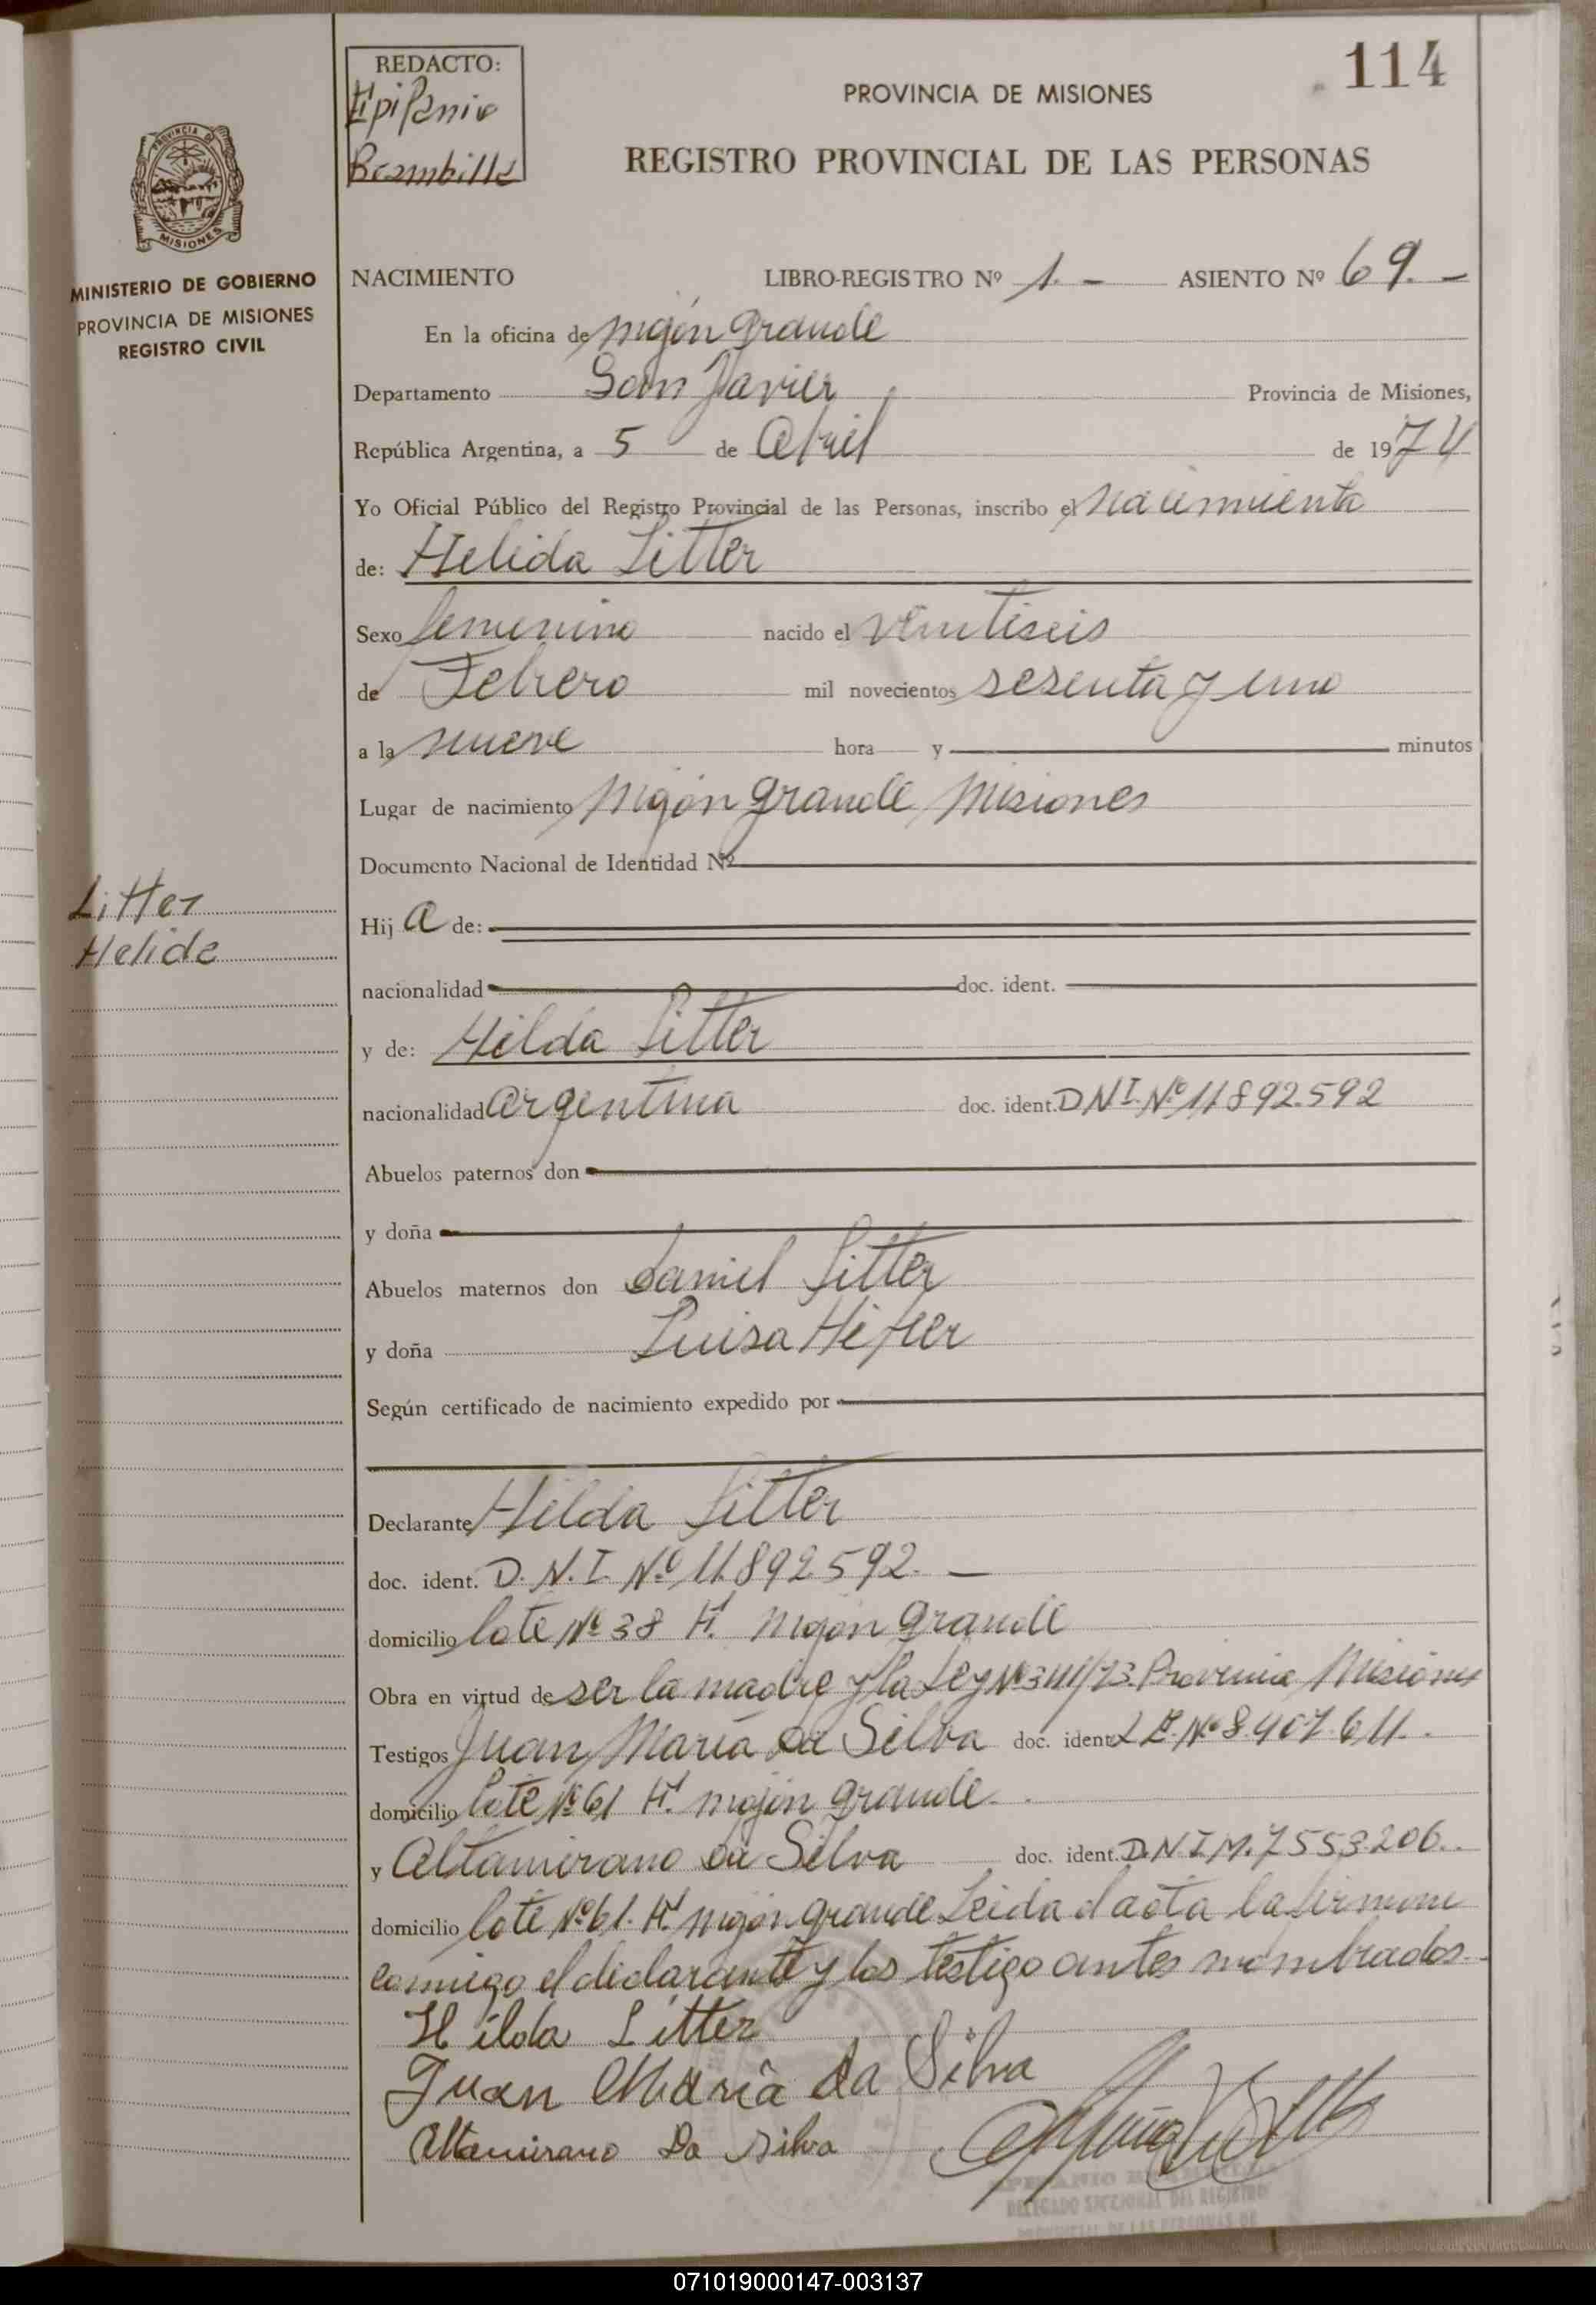 114
REDACTO:
Epifanio
Brambilla
PROVINCIA DE MISIONES
REGISTRO PROVINCIAL DE LAS PERSONAS
PROVINCIA DE
MISIONES
MINISTERIO DE GOBIERNO
PROVINCIA DE MISIONES
REGISTRO CIVIL
NACIMIENTO LIBRO-REGISTRO Nº 1.- ASIENTO Nº 69.-
En la oficina de mojón grande
Departamento San Javier Provincia de Misiones,
República Argentina, a 5 de Abril de 1974
Yo Oficial Público del Registro Provincial de las Personas, inscribo el nacimiento
de: Helida Litter
Sexo femenino nacido el veintiseis
de Febrero mil novecientos sesenta y uno
a la nueve hora y minutos
Lugar de nacimiento mojón grande Misiones
Documento Nacional de Identidad Nº
Litter
Helida
Hij a de:
nacionalidad doc. ident.
y de: Hilda Litter
nacionalidad argentina doc. ident. DNI. Nº 11892.592
Abuelos paternos don
y doña
Abuelos maternos don Daniel Litter
y doña Luisa
Según certificado de nacimiento expedido por
Declarante Hilda Litter
doc. ident. D.N.I. Nº 11.892.592.-
domicilio lote Nº 38 mojón grande
Obra en virtud de ser la madre y la Ley Nº Provincia Misiones
Testigos Juan María da Silva doc. ident. L.E. Nº 8.407.611.
domicilio lote Nº 61 mojón grande.
y Altamirano da Silva doc. ident. D.N.I.M. 7553.206.
domicilio lote Nº 61. mojón grande Leida el acta la firman
conmigo el declarante y los testigo antes nombrados.
Hilda Litter
Juan María da Silva
Altamirano Da Silva
DELEGADO SECCIONAL DEL REGISTRO
PROVINCIAL DE LAS PERSONAS DE
071019000147-003137